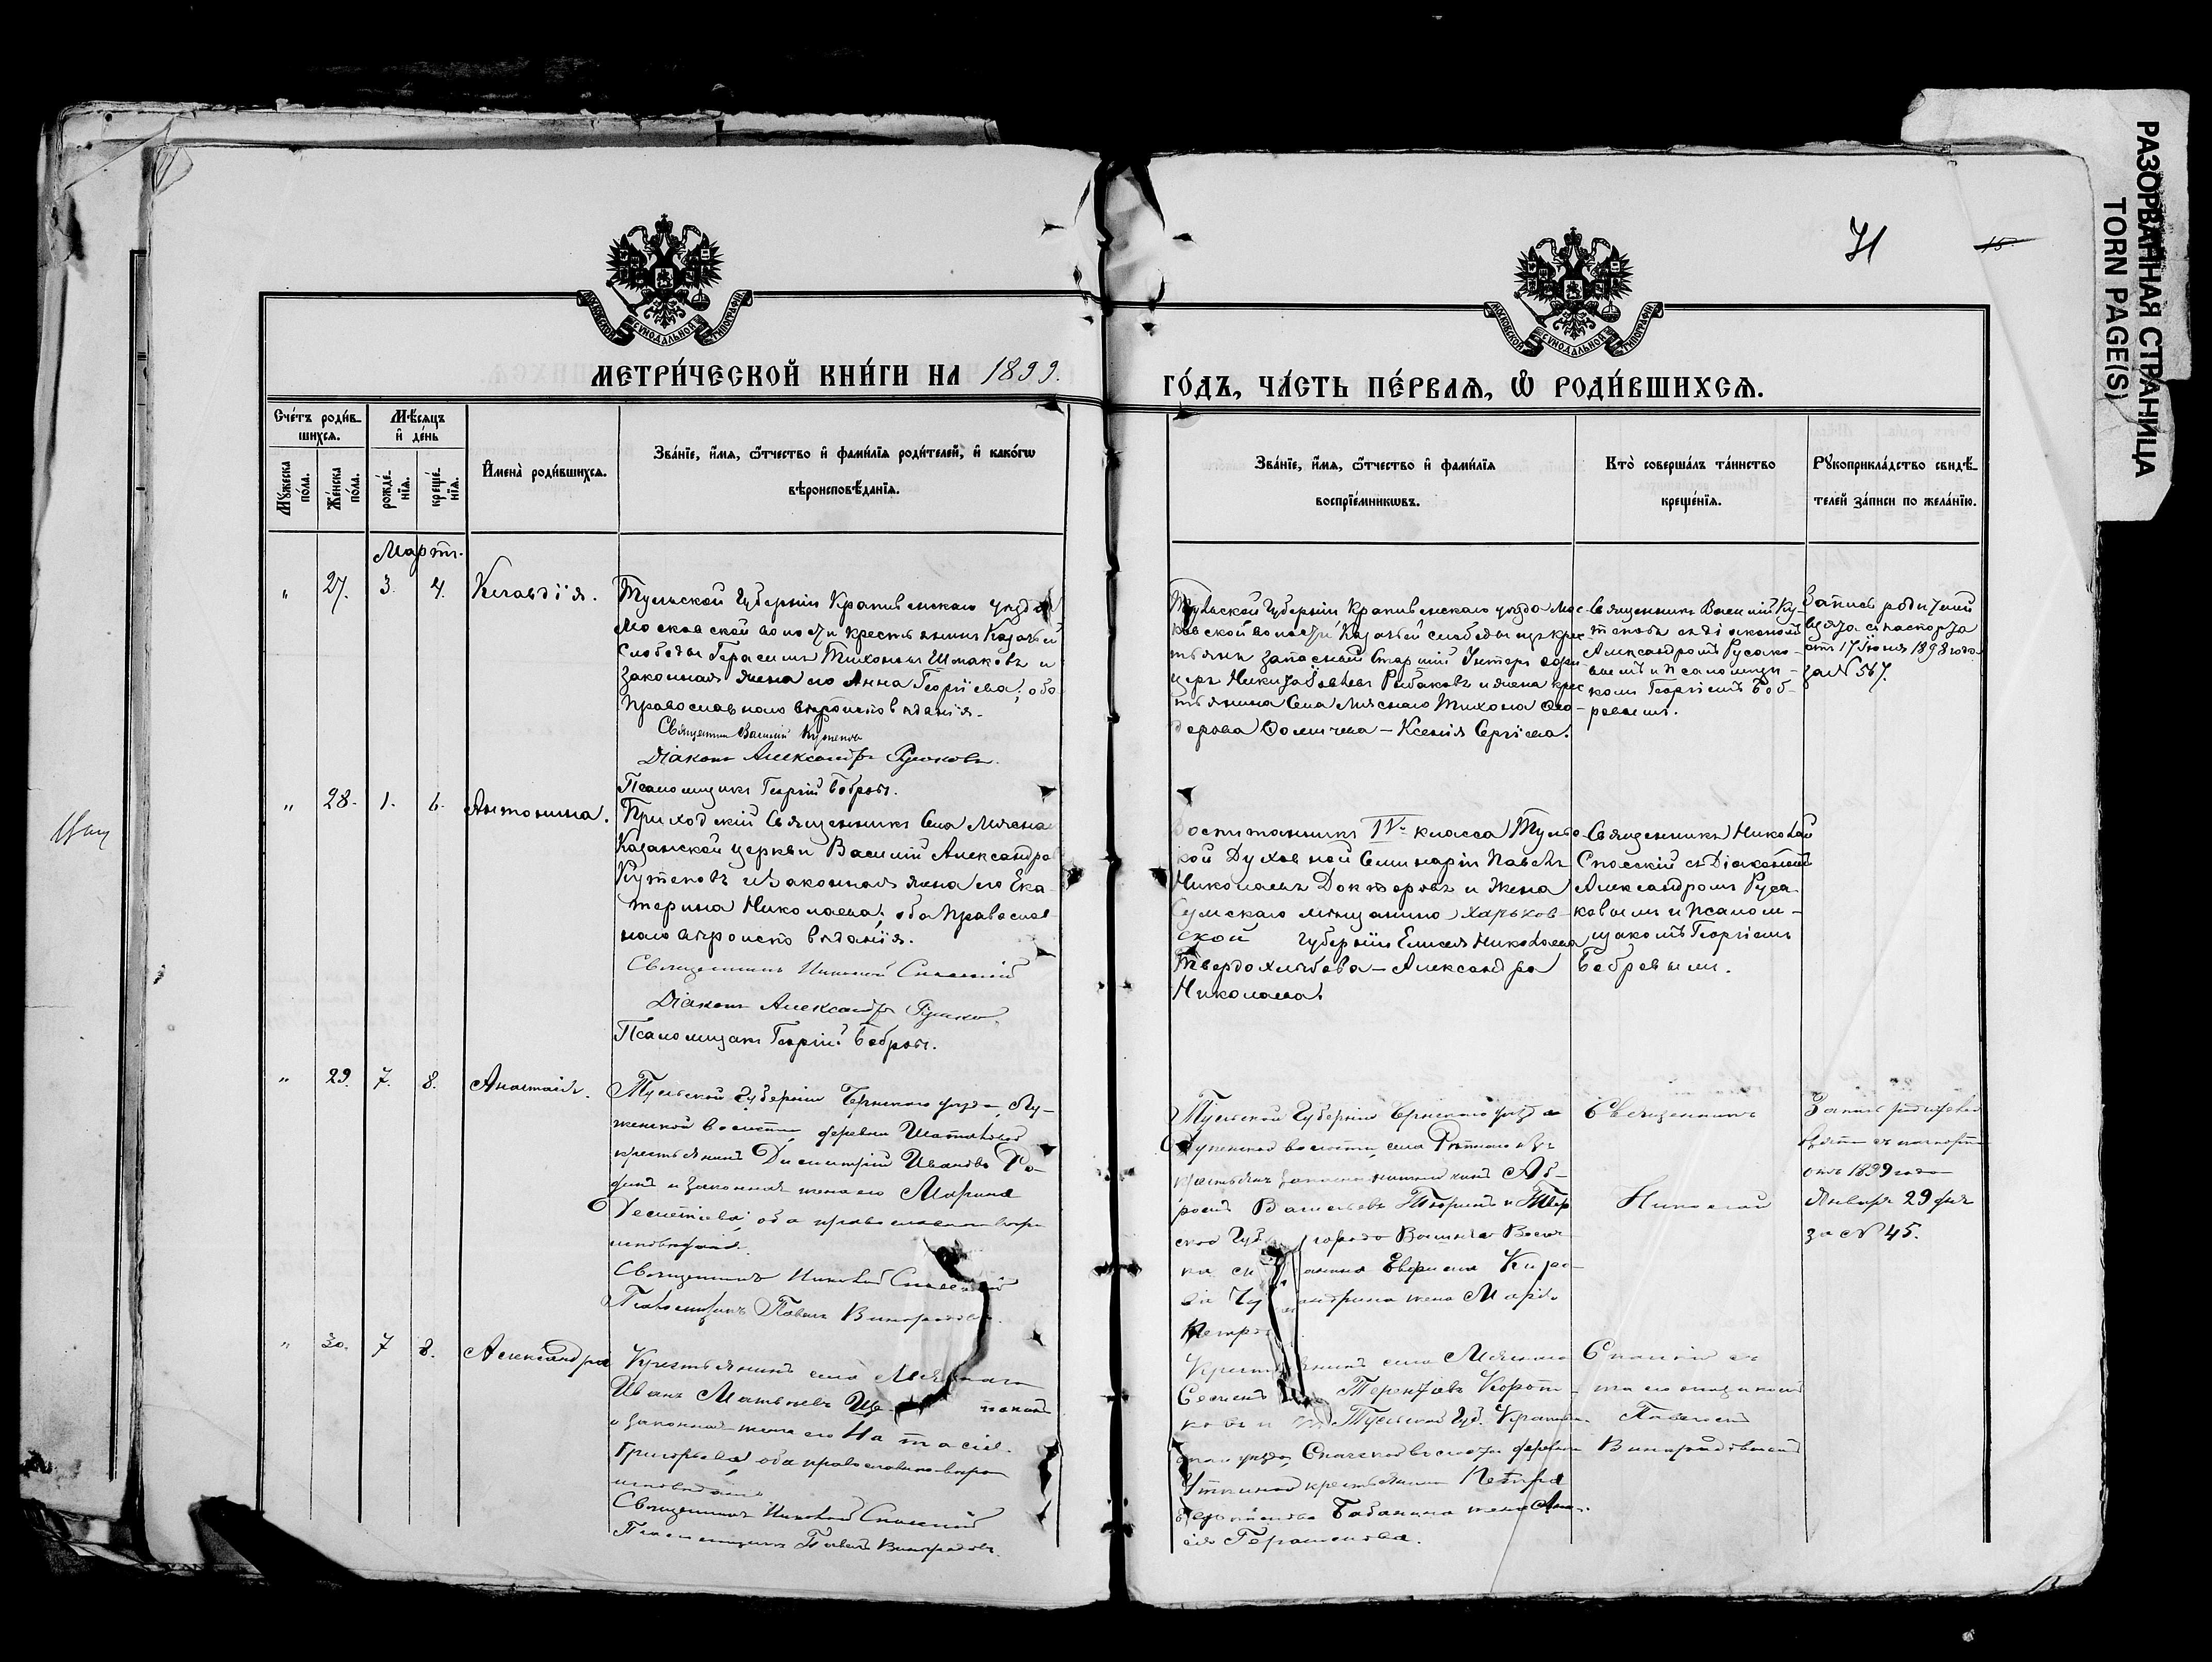 РАЗОРВАННАЯ СТРАНИЦА
TORN PAGE(S)
71
15
МОСКОВСКОЙ СѴНОДАЛЬНОЙ ТИПОГРАФІИ
МОСКОВСКОЙ СѴНОДАЛЬНОЙ ТИПОГРАФІИ
МЕТРИ́ЧЕСКОЙ КНИ́ГИ НА 1899.
ГО́ДЪ, ЧА́СТЬ ПЕ́РВАѦ, Ѡ҆ РОДИ́ВШИХСѦ.
Сче́тъ роди́в-
шихсѧ.
Мѣ́сѧцъ
и҆ де́нь
Мꙋ́жеска
по́ла.
Же́нска
по́ла.
рожде́-
нїѧ.
креще́-
нїѧ.
И҆мена̀ роди́вшихсѧ.
Зва́нїе, и҆́мѧ, ѻ҆́тчество и҆ фами́лїѧ роди́телей, и҆ како́гѡ
вѣроисповѣ́данїѧ.
Зва́нїе, и҆́мѧ, ѻ҆́тчество и҆ фами́лїѧ
воспрїе́мникѡвъ.
Кто̀ соверша́лъ та́инство
креще́нїѧ.
Рꙋкоприкла́дство свидѣ́-
телей за́писи по жела́нїю.
Мартъ.
" 27. 3. 4. Клавдія.
Тульской Губерніи Крапивенскаго уѣзда
Московской волости крестьянинъ Казачьей
Слободы Герасимъ Тихоновъ Шмаковъ и
Законная жена его Анна Георгіева; оба
Православнаго вѣроисповѣданія.
Священникъ Василій Кутеповъ
Діаконъ Александръ Русаковъ.
Псаломщикъ Георгій Бобровъ.
Тульской Губерніи Крапивенскаго уѣзда Мос
ковской волости Казачьей слободы изъ крес
тьянъ запасный Старшій Унтеръ офи-
церъ Никита Іовлевъ Рыбаковъ и жена крес
тьянина Села Мяснаго Тихона Ѳео-
дорова Ѳомичева - Ксенія Сергіева.
Священникъ Василій Ку-
теповъ съ діакономъ
Александромъ Русако-
вымъ и псаломщи-
комъ Георгіемъ Боб-
ровымъ.
Запись родителей
взята съ паспорта
отъ 17 Іюня 1898 года
за N 567.
" 28. 1. 6. Антонина.
Приходскій Священникъ Села Мяснаго
Казанской церкви Василій Александров
Кутеповъ и Законная жена его Ека-
терина Николаева; оба Православ-
наго вѣроисповѣданія.
Священникъ Николай Спасскій
Діаконъ Александръ Русаковъ
Псаломщикъ Георгій Бобровъ.
Воспитанникъ IV класса Тульс
кой Духовной Семинаріи Павелъ
Николаевъ Докторовъ и Жена
Сумскаго мѣщанина Харьков-
ской Губерніи Елисея Николаева
Твердохлѣбова - Александра
Николаева.
Священникъ Николай
Спасскій съ Діакономъ
Александромъ Руса-
ковымъ и Псалом-
щикомъ Георгіемъ
Бобровымъ.
" 29. 7. 8. Анастасія.
Тульской Губерніи Чернскаго уѣзда, Лу-
женской волости, деревни
крестьянинъ Димитрій Ивановъ
и законная жена его Марина
оба православнаго вѣро
исповѣданія.
Священникъ Николай Спасскій
Псаломщикъ Павелъ Виноградовъ.
Тульской Губерніи Чернскаго уѣзда
Луженской волости, села
крестьянъ запасный нижній чинъ
Васильевъ и Твер
ской Губ
жена Марѳа
Петров
Священникъ
Николай
Запись родителей
взята съ паспорта
отъ 1899 года
Января 29 дня
за N 45.
" 30. 7 8. Александра
Крестьянинъ села Мяснаго
Иванъ Матвѣевъ
и законная жена его Наталія
Григорьева оба православнаго вѣро
исповѣданія
Священникъ Николай Спасскій
Псаломщикъ Павелъ Виноградовъ.
Крестьянинъ села Мяснаго
Семенъ Терентьевъ
Тульской Губ. Крапивен
скаго уѣзда, волости деревни
крестьянина Петра
Бабанина жена
Герасимова.
Спасскій съ
псаломщикомъ
Павломъ
Виноградовымъ